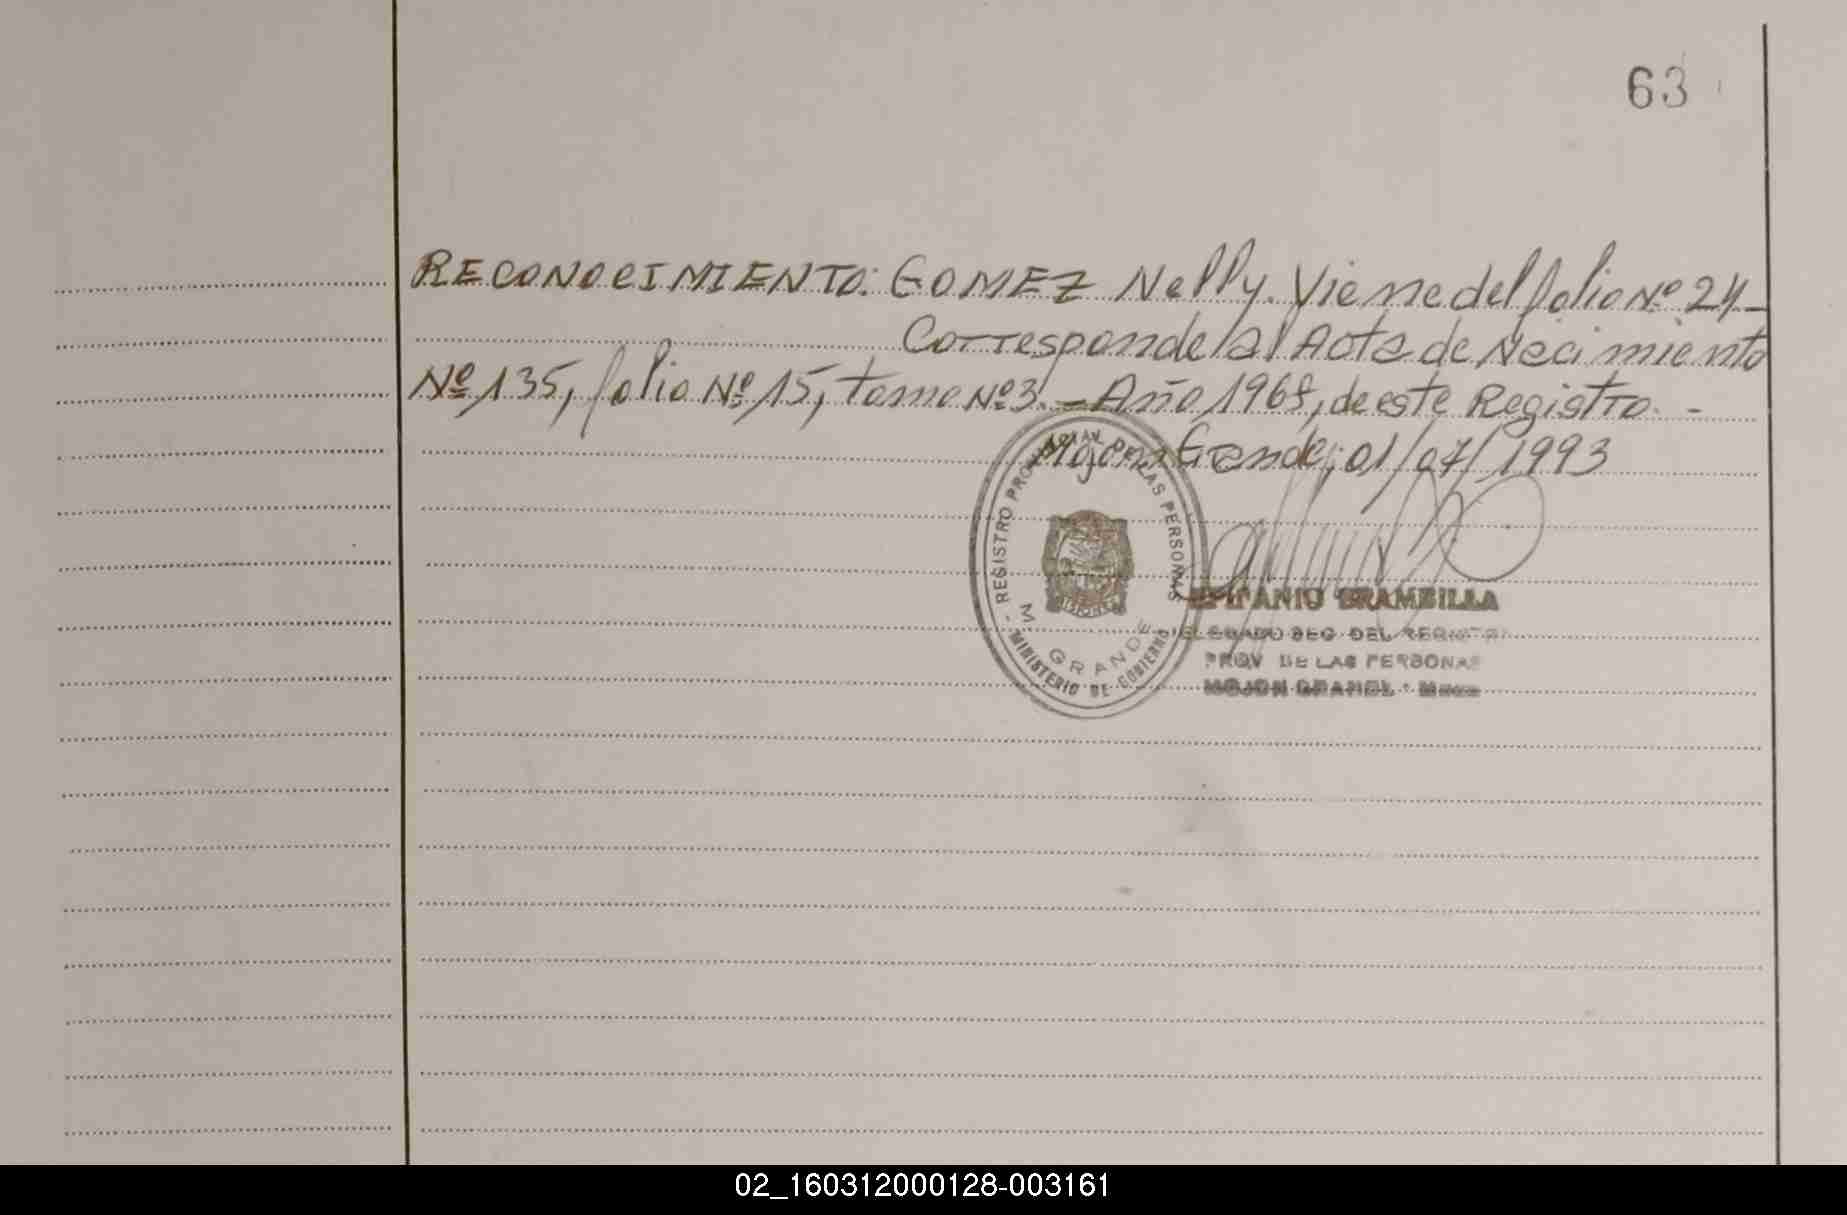 63
RECONOCIMIENTO: GOMEZ Nelly. Viene del folio Nº 24_
Corresponde al Acta de Nacimiento
Nº 135, folio Nº 15, tomo Nº 3. _ Año 1968, de este Registro. -
Mojón Grande, 01/07/1993
- REGISTRO PROVINCIAL DE LAS PERSONAS
M. GRANDE
MINISTERIO DE GOBIERNO
MISIONES
EPIFANIO BRAMBILLA
DELEGADO SEC. DEL REGISTRO
PROV. DE LAS PERSONAS
MOJON GRANDE - Mnes
02_160312000128-003161